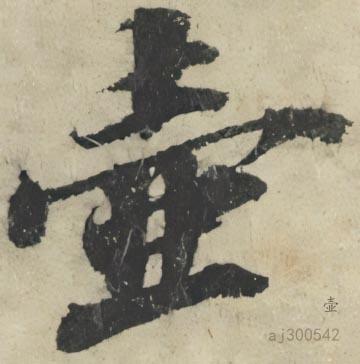 壺
壺
aj300542